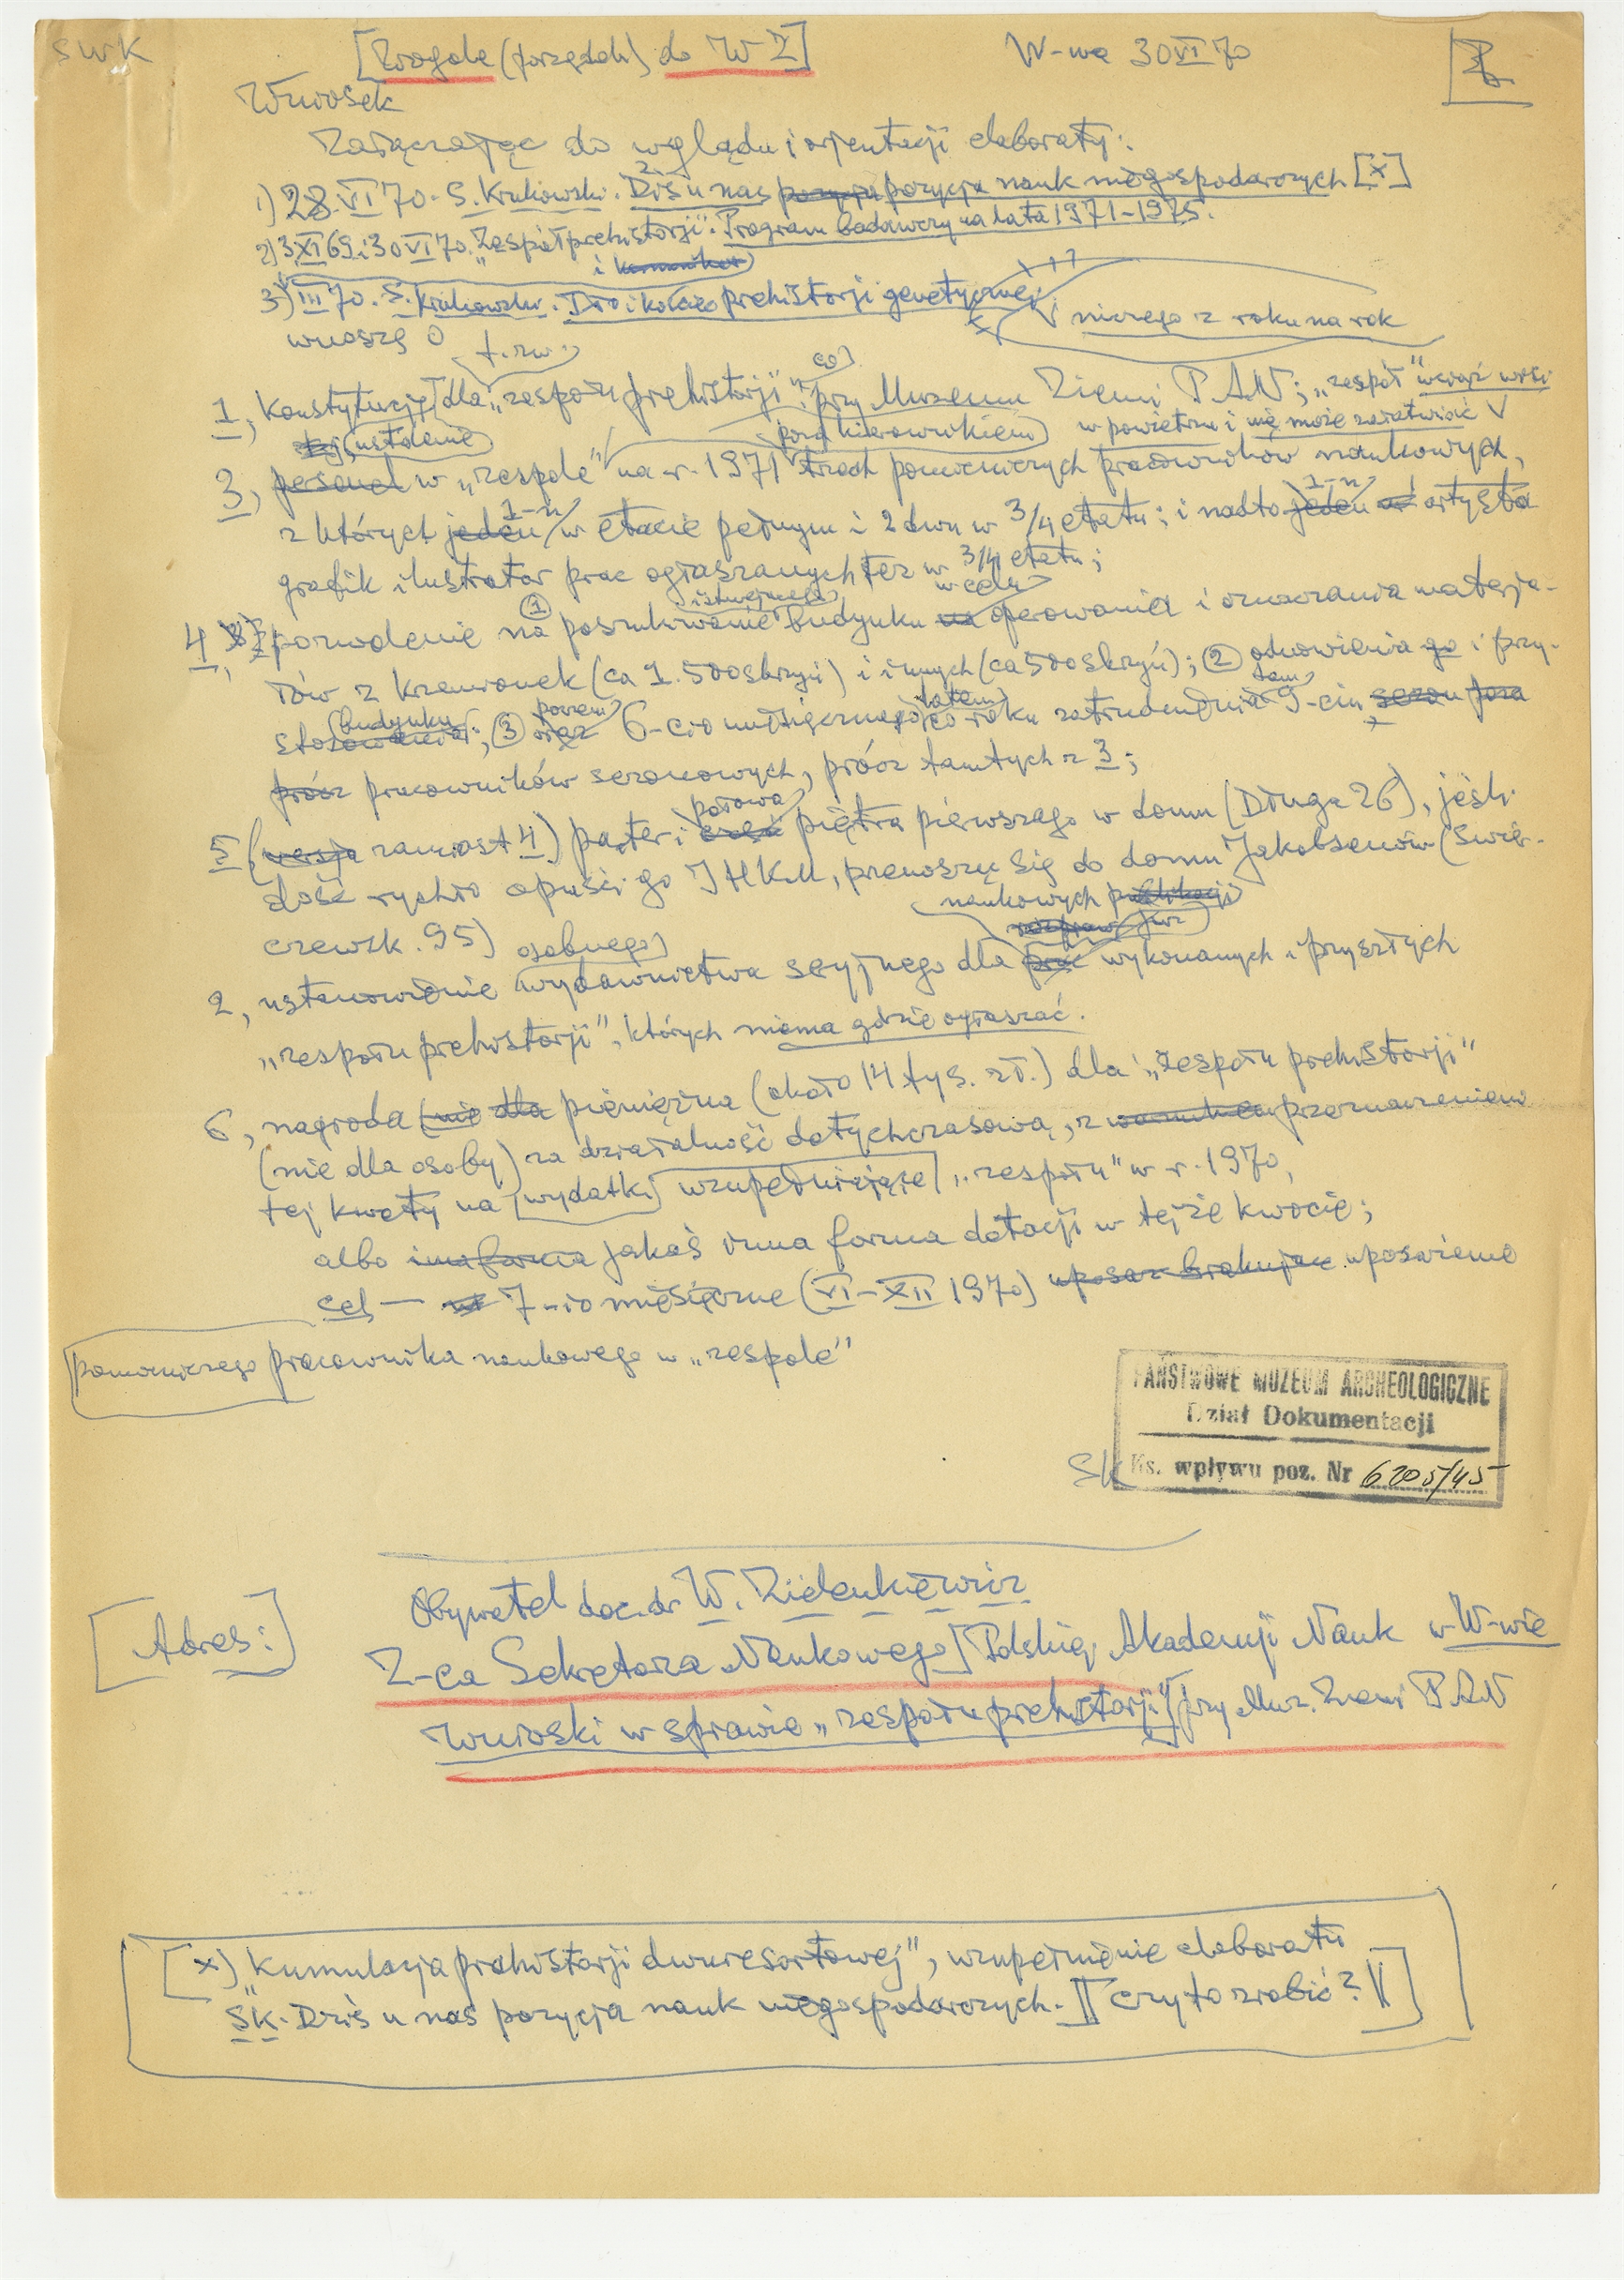 SWK [ (porządek) do W Z] W-wa 30 VI 70
Wniosek
Załączając do wglądu i orjentacji elaboraty:
1) 28. VI 70. S. Krukowski. Dziś u nas pozycja nauk niegospodarczych [x]
2) 3 XI 69 i 30 VI 70. „Zespół prehistorji". Program badawczy na lata 1971–1975.
i
3) III 70. S. Krukowski. Dno i koło prehistorji genetycznej
wnoszę o niczego z roku na rok
t. zw. co
1, Konstytucję dla „zespołu prehistorji" przy Muzeum Ziemi PAN; „zespół" wciąż wisi
ustalenie pod kierownikiem w powietrzu i nie może załatwiać
3, personel w „zespole" na r. 1971 trzech pomocniczych pracowników naukowych,
1-n 1-n
z których jeden w etacie pełnym i 2 dwu w 3/4 etatu; i nadto jeden artysta
grafik ilustrator prac ogłaszanych też w 3/4 etatu;
① istniejącego w celu
4, pozwolenie na poszukiwanie budynku na operowania i oznaczania materja-
łów z Krzemionek (ca 1.500 skrzyń) i innych (ca 500 skrzyń); ② odnowienia go i przy-
budynku potem latem tam
stosowania; ③ oraz 6-cio miesięcznego co roku zatrudnienia 9-ciu
prócz pracowników sezonowych, prócz tamtych z 3;
połowa
5 (wersja zamiast 4) parter i część piętra pierwszego w domu (Długa 26), jeśli
dość rychło opuści go IHKM, przenosząc się do domu Jakobsenów (Świer-
naukowych publikacji
czewsk. 95) osobnego
2, ustanowienie wydawnictwa seryjnego dla prac wykonanych i przyszłych
„zespołu prehistorji", których niema gdzie ogłaszać.
6, nagroda (nie dla pieniężna (około 14 tys. zł.) dla „zespołu prehistorji"
(nie dla osoby) za działalność dotychczasową, z warunkiem przeznaczeniem
tej kwoty na wydatki wzupełniające „zespołu" w r. 1970,
albo inna forma jakaś inna forma dotacji w tejże kwocie;
cel — 7-io miesięczne (VI–XII 1970) uposaż brakujące uposażenie
pomocniczego pracownika naukowego w „zespole"
PAŃSTWOWE MUZEUM ARCHEOLOGICZNE
Dział Dokumentacji
SK Ks. wpływu poz. Nr 6205/45
Obywatel doc. dr W. Zielenkiewicz
[Adres:] Z-ca Sekretarza Naukowego Polskiej Akademji Nauk w W-wie
Wnioski w sprawie „zespołu prehistorji" przy Muz. Ziemi PAN
[x) „Kumulacja prehistorji dwuresortowej", wzupełnienie elaboratu
SK. Dziś u nas pozycja nauk niegospodarczych.] [czy to zrobić?]